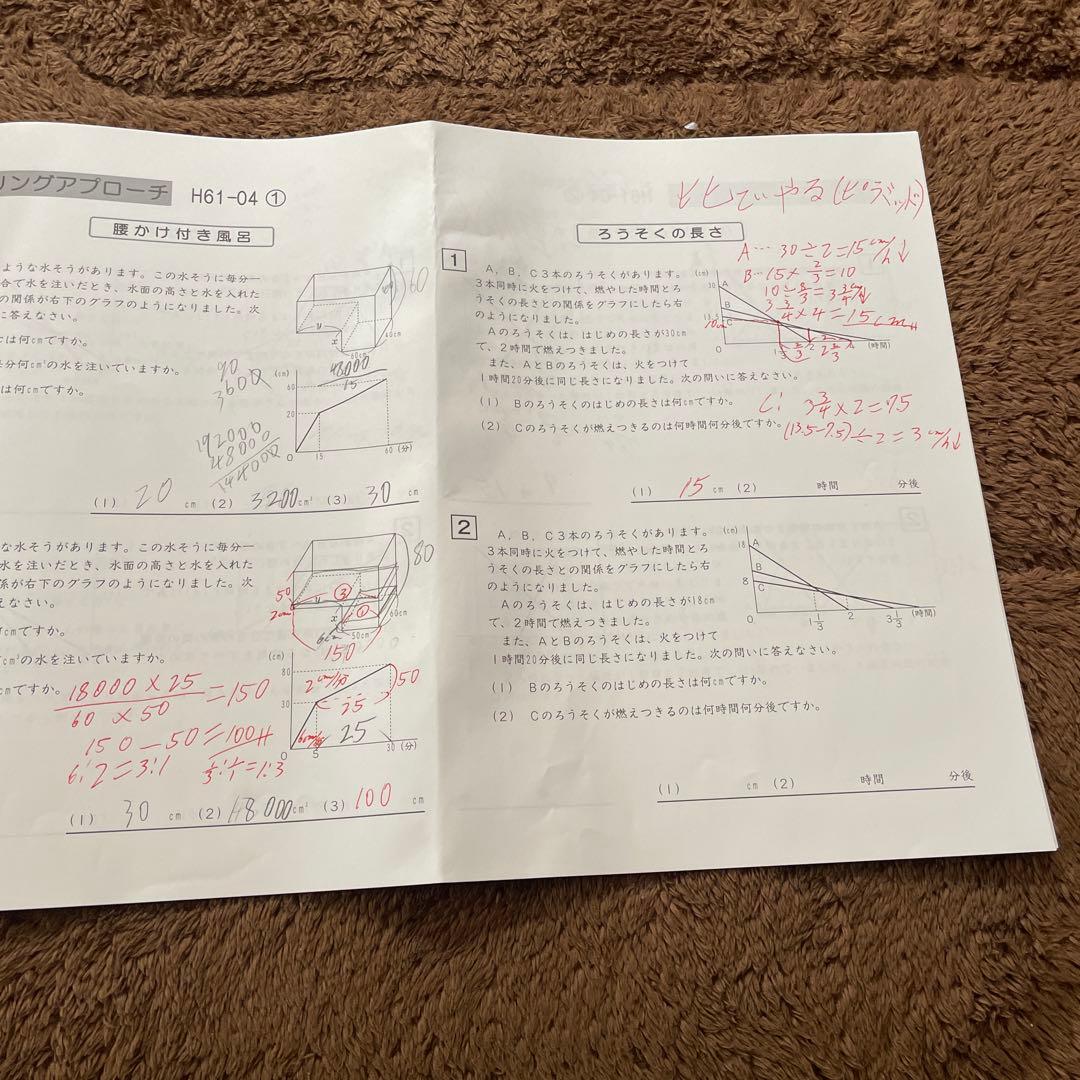 リングアプローチ H61-04 ①
腰かけ付き風呂
ような水そうがあります。この水そうに毎分一
合で水を注いだとき、水面の高さと水を入れた
の関係が右下のグラフのようになりました。次
に答えなさい。
は何cmですか。
毎分何cm³の水を注いでいますか。
は何cmですか。
90
3600
192000
48000
144000
60
40cm
60cm
x
y
48000
15
(cm)
60
20
0
15
60 (分)
(1) 20 cm (2) 3200 cm³ (3) 30 cm
な水そうがあります。この水そうに毎分一
水を注いだとき、水面の高さと水を入れた
係が右下のグラフのようになりました。次
えなさい。
cmですか。
cm³の水を注いでいますか。
cmですか。
80
50
③
①
y
x
60cm
50cm
150
18000×25
60×50
=150
150-50=100
6:2=3:1
1:3
(cm)
80
30
0
5
30 (分)
2cm/分
25
50
25
(1) 30 cm (2) 18000 cm³ (3) 100 cm
ろうそくの長さ
1
A，B，C3本のろうそくがあります。
3本同時に火をつけて、燃やした時間とろ
うそくの長さとの関係をグラフにしたら右
のようになりました。
Aのろうそくは、はじめの長さが30cm
で、2時間で燃えつきました。
また、AとBのろうそくは、火をつけて
1時間20分後に同じ長さになりました。次の問いに答えなさい。
(1) Bのろうそくのはじめの長さは何cmですか。
(2) Cのろうそくが燃えつきるのは何時間何分後ですか。
A…30÷2=15cm/h↓
B…15×2/3=10
10÷8/3=3 3/4
3 3/4×4=15cm
(cm)
A
B
C
13.5
10cm
0
2
4
(時間)
C: 3 3/4×2=7.5
(13.5-7.5)÷2=3cm/h↓
(1) 15 cm (2) 時間 分後
2
A，B，C3本のろうそくがあります。
3本同時に火をつけて、燃やした時間とろ
うそくの長さとの関係をグラフにしたら右
のようになりました。
Aのろうそくは、はじめの長さが18cm
で、2時間で燃えつきました。
また、AとBのろうそくは、火をつけて
1時間20分後に同じ長さになりました。次の問いに答えなさい。
(1) Bのろうそくのはじめの長さは何cmですか。
(2) Cのろうそくが燃えつきるのは何時間何分後ですか。
(cm)
18
A
B
8
C
0
1 1/3
2
3 1/3
(時間)
(1) cm (2) 時間 分後